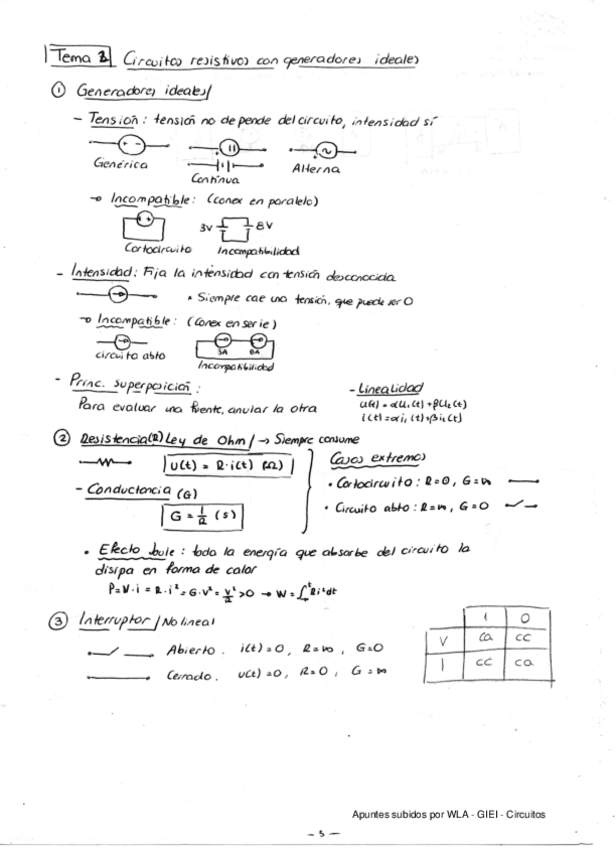 Tema 2 Circuitos resistivos con generadores ideales
① Generadores ideales/
- Tensión: tensión no depende del circuito, intensidad sí
Genérica
Continua
Alterna
→ Incompatible: (conex en paralelo)
3V 8V
Cortocircuito Incompatibilidad
- Intensidad: Fija la intensidad con tensión desconocida
* Siempre cae una tensión, que puede ser 0
→ Incompatible: (conex en serie)
3A 8A
circuito abto Incompatibilidad
- Princ. superposición:
Para evaluar una fuente, anular la otra
- Linealidad
u(t) = αu₁(t)+βu₂(t)
i(t) = αi₁(t)+βi₂(t)
② Resistencia(R) Ley de Ohm/ → Siempre consume
u(t) = R·i(t) (Ω)
- Conductancia (G)
G = 1/R (S)
Casos extremos
• Cortocircuito: R=0, G=∞
• Circuito abto: R=∞, G=0
• Efecto Joule: toda la energía que absorbe del circuito la
disipa en forma de calor
P=V·i = R·i² = G·V² = V²/R >0 → W=∫Ri²dt
③ Interruptor/No lineal
Abierto. i(t)=0, R=∞, G=0
Cerrado. u(t)=0, R=0, G=∞
1 0
V ca cc
I cc ca
Apuntes subidos por WLA - GIEI - Circuitos
- 5 -